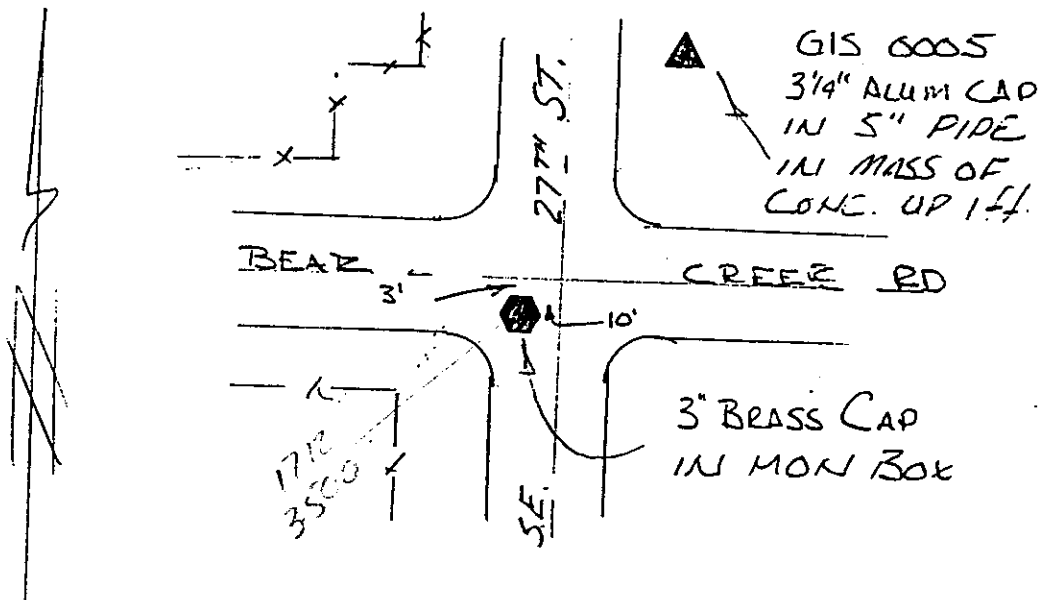 GIS 0005
3 1/4" ALUM CAP
IN 5" PIPE
IN MASS OF
CONC. UP 1 ft.
27TH ST.
BEAR CREEK RD
3'
10'
3" BRASS CAP
IN MON BOX
S.E.
N